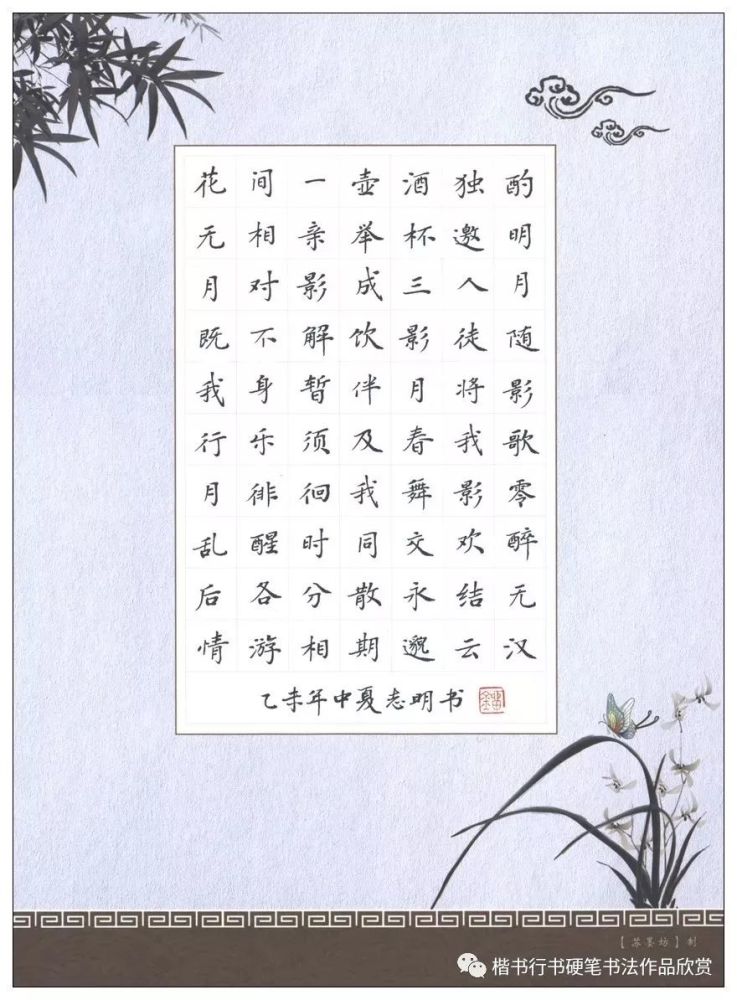 花间一壶酒独酌
无相亲举杯邀明
月对影成三人月
既不解饮影徒随
我身暂伴月将影
行乐须及春我歌
月徘徊我舞影零
乱醒时同交欢醉
后各分散永结无
情游相期邈云汉
乙未年中夏志明书
【苏墨坊】制
楷书行书硬笔书法作品欣赏